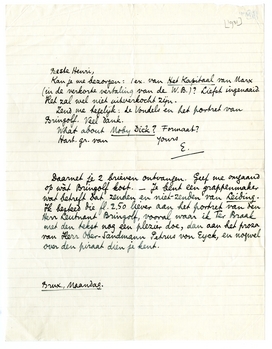 Beste Henri,
Kan je me bezorgen: 1 ex. van Het Kapitaal van Marx
(in de verkorte vertaling van de W.B.)? Liefst ingenaaid
Het zal wel niet uitverkocht zijn.
Zend me tegelijk: de Vondels en het portret van
Bringolf. Veel dank.
What about Moby Dick? Formaat?
Hart. gr. van Yours
E.
Daarnet je 2 brieven ontvangen. Geef me omgaand
op wat Bringolf kost. — Je bent een grappenmaker
wat betreft dat zenden en niet-zenden van Leibing.
Ik besteed die fl. 2.50 liever aan het portret van den
Herr Leutnant Bringolf, vooral waar ik Ter Braak
met den tekst nog een plezier doe, dan aan het proza
van Herr Ober-Landmann Petrus von Eyck, en nogwel
over den piraat dien je kent.
Brux, Maandag.